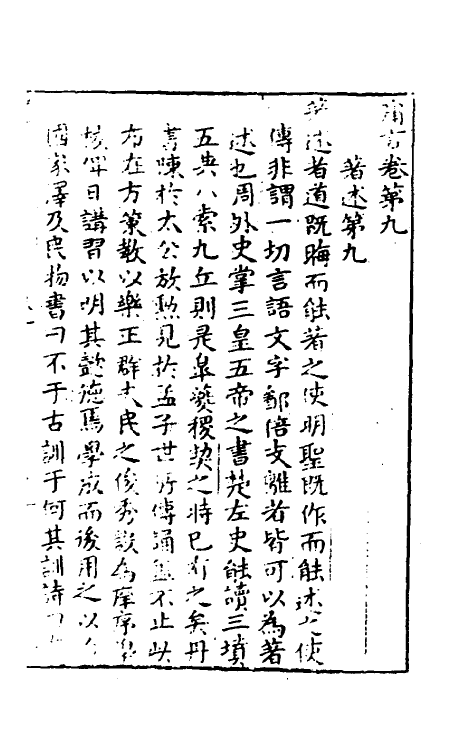 庸言卷第九
著述第九
著述者道既晦而能著之使明聖既作而能述之使
傳非謂一切言語文字鄙倍支離者皆可以為著
述也周外史掌三皇五帝之書楚左史能讀三墳
五典八索九丘則是皋夔稷契之時已有之矣丹
書陳於太公放勲見於孟子世所傳誦蓋不止此
布在方策教以樂正群夫民之俊秀設為庠序
終年日講習以明其懿德焉學成而後用之以
國家澤及民物書曰不于古訓于何其訓詩曰